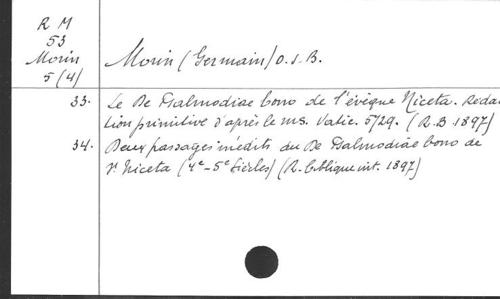 R M
53
Morin
5 (4)
Morin (Germain) O. S. B.
33. Le De Psalmodiae bono de l'évêque Niceta. Redac-
tion primitive d'après le ms. Vatic. 5729. (R.B. 1897)
34. Deux passages inédits du De Psalmodiae bono de
St Niceta (4e-5e Siècles) (R. biblique int. 1897)